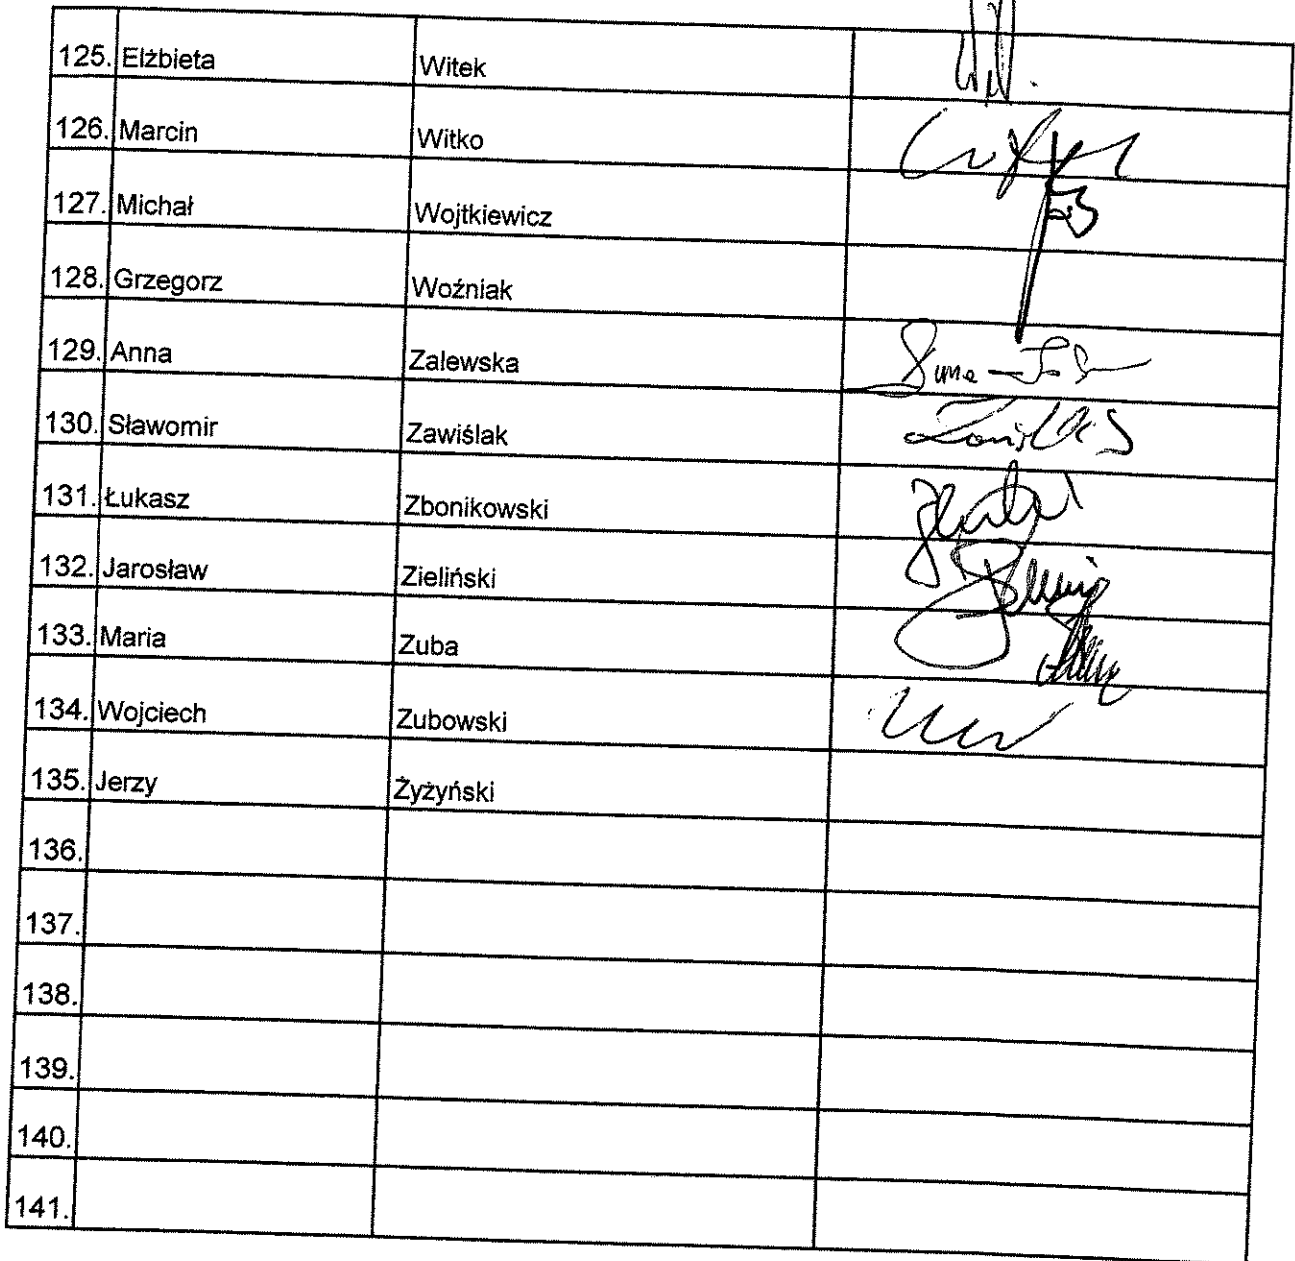 125. Elżbieta Witek
126. Marcin Witko
127. Michał Wojtkiewicz
128. Grzegorz Woźniak
129. Anna Zalewska
130. Sławomir Zawiślak
131. Łukasz Zbonikowski
132. Jarosław Zieliński
133. Maria Zuba
134. Wojciech Zubowski
135. Jerzy Żyżyński
136.
137.
138.
139.
140.
141.